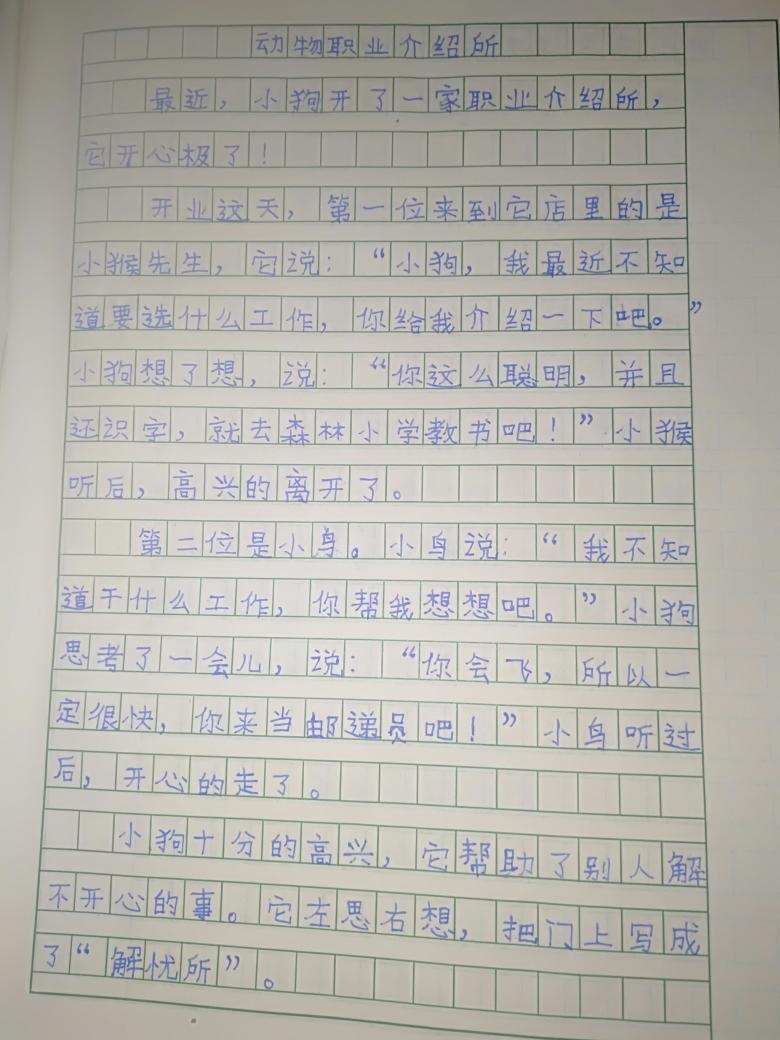 动物职业介绍所
最近，小狗开了一家职业介绍所，
它开心极了！
开业这天，第一位来到它店里的是
小猴先生，它说：“小狗，我最近不知
道要选什么工作，你给我介绍一下吧。”
小狗想了想，说：“你这么聪明，并且
还识字，就去森林小学教书吧！”小猴
听后，高兴的离开了。
第二位是小鸟。小鸟说：“我不知
道干什么工作，你帮我想想吧。”小狗
思考了一会儿，说：“你会飞，所以一
定很快，你来当邮递员吧！”小鸟听过
后，开心的走了。
小狗十分的高兴，它帮助了别人解
不开心的事。它左思右想，把门上写成
了“解忧所”。